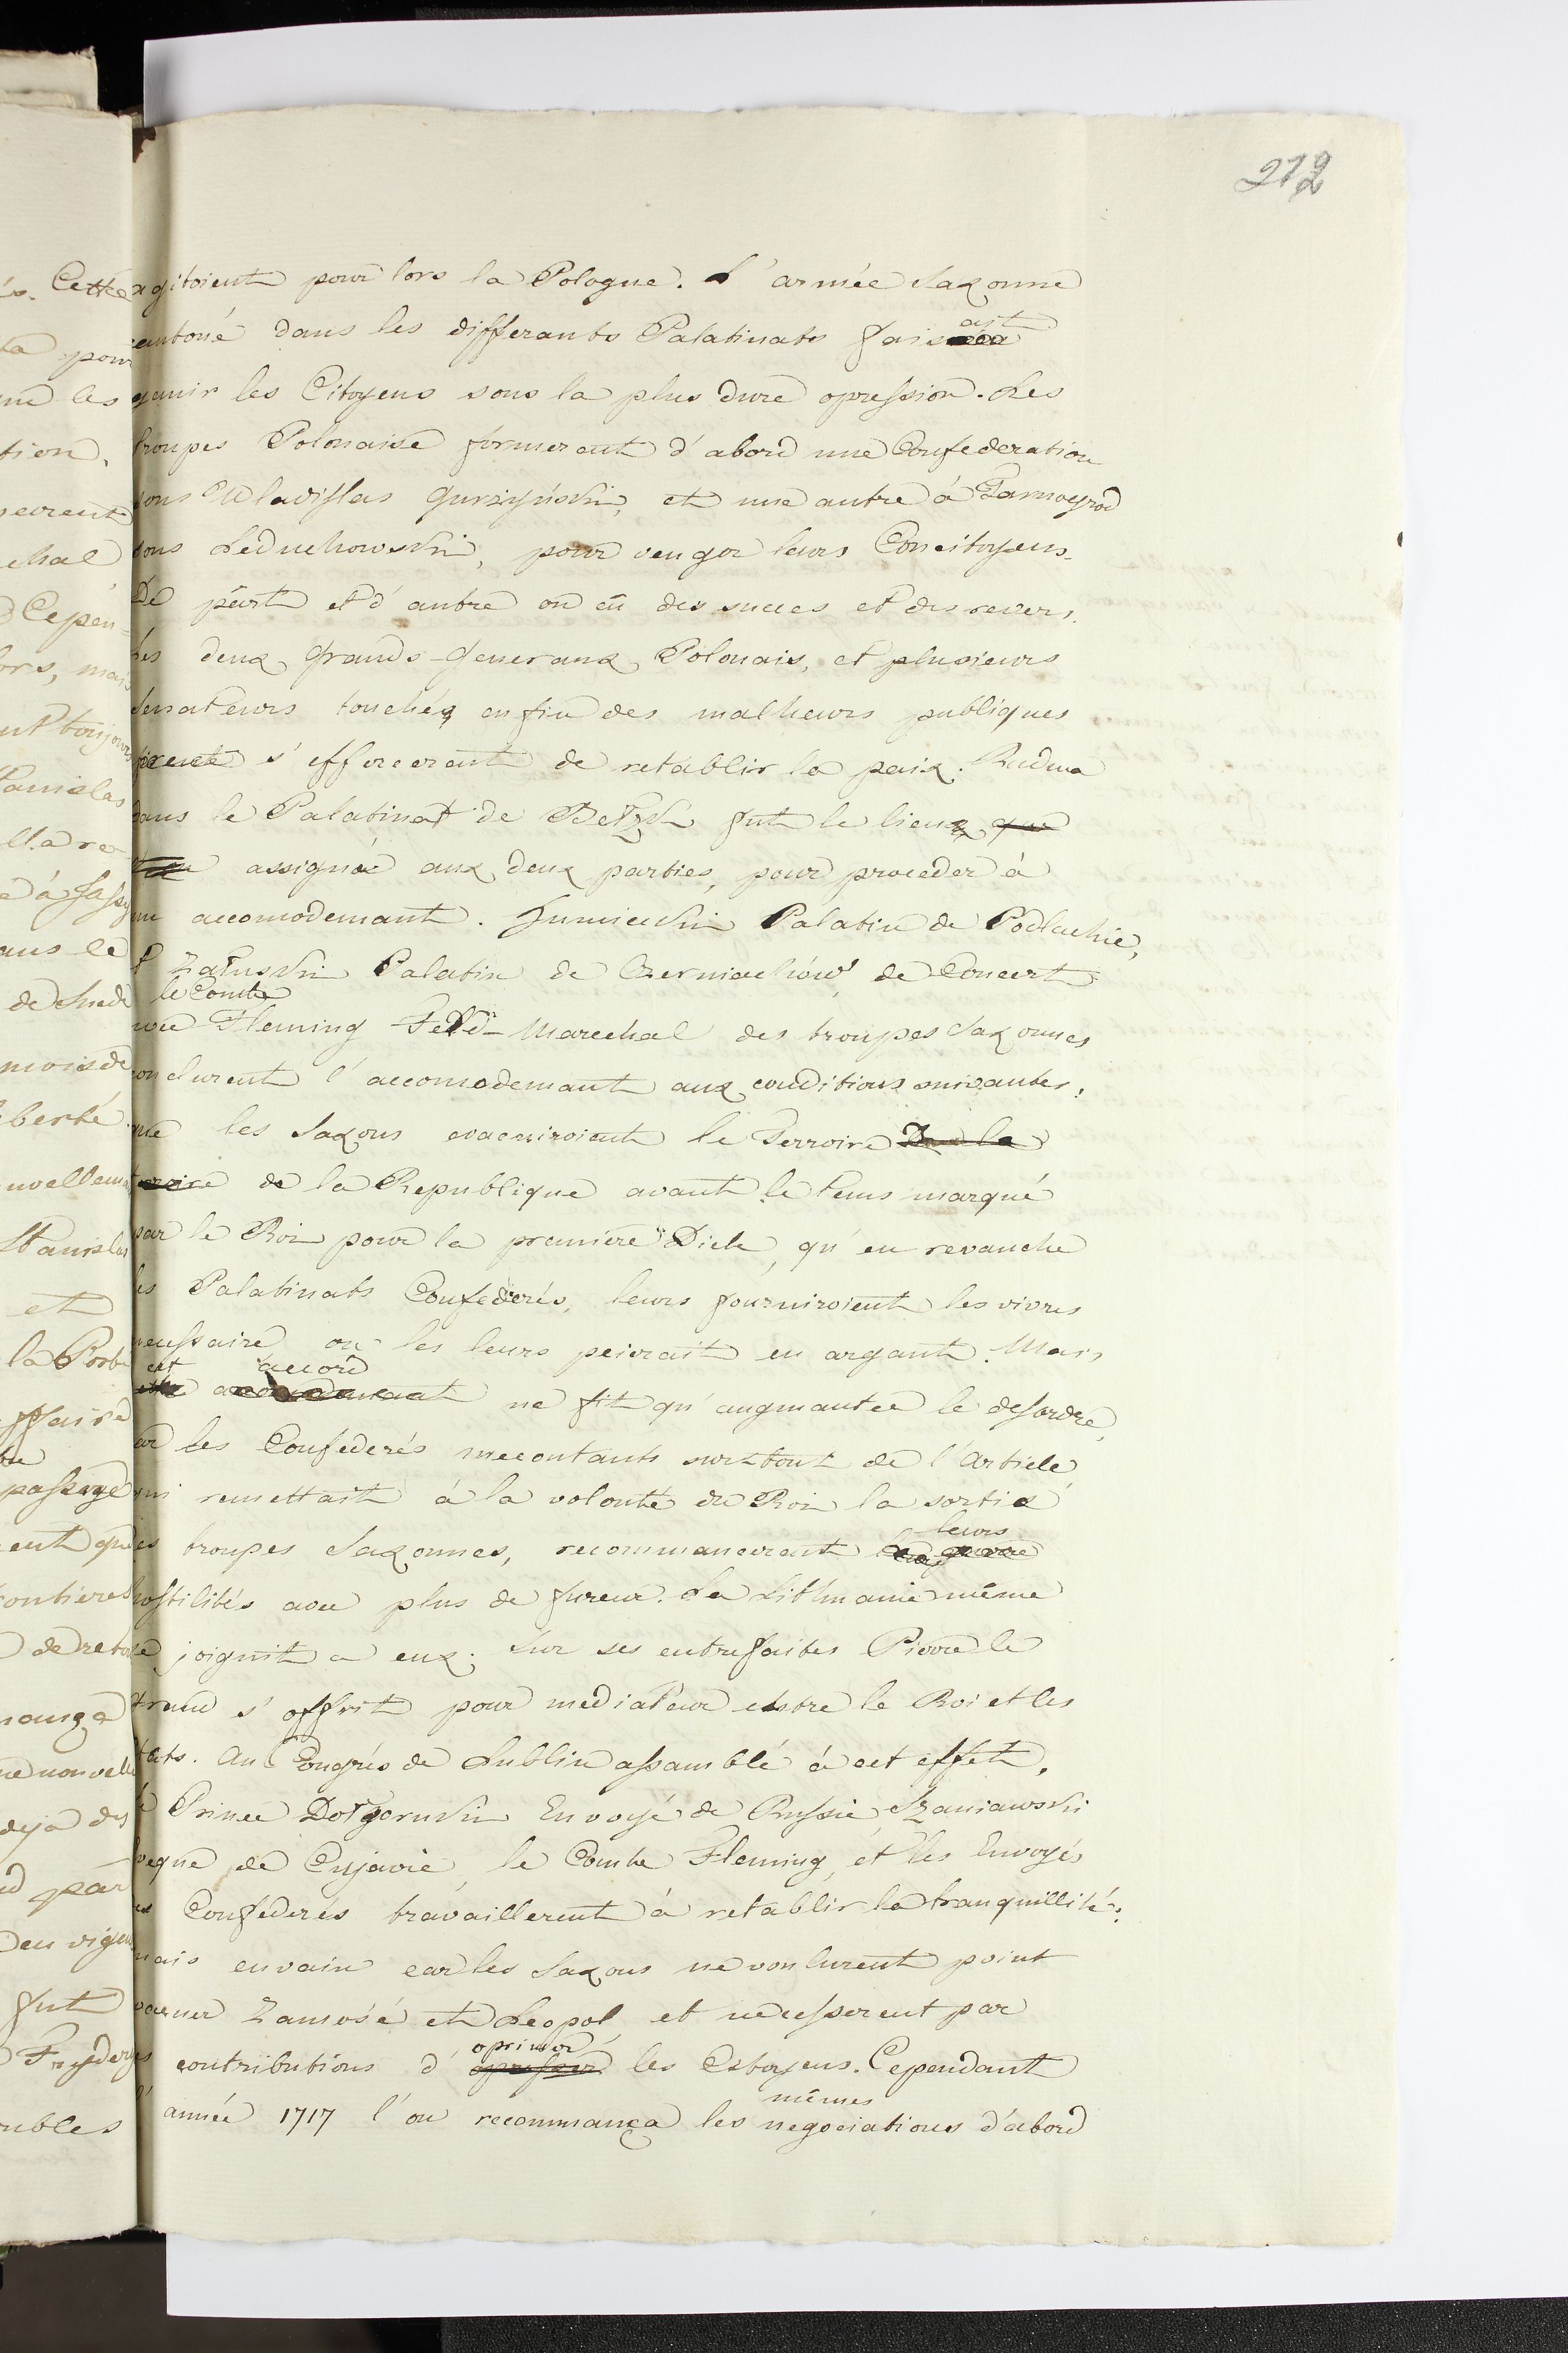 212
agitoient pour lors la Pologne. L'armée Saxonne
cantoné dans les differants Palatinats faisait
gemir les Citoyens sous la plus dure opression. Les
troupes Polonaise formerent d'abord une Confederation
sous Wladislas Gurzyński, et une autre à Tarnogrod
sous Leduchowski, pour venger leurs Concitoyens.
De part et d'autre on eû des succes et des revers.
Les deux Grands-Generaux Polonais, et plusieurs
Senateurs touchés enfin des malheurs publiques
s'efforcerent de retablir la paix. Radwa
dans le Palatinat de Bełzk fut le lieux que
assignée aux deux parties, pour proceder à
un accomodemant. Palatin de Podlachie,
Załuski Palatin de Czerniachów, de Concert
le Comte
avec Fleming Feld-Marechal des troupes Saxonnes
conclurent l'accomodemant aux conditions suivantes,
que les Saxons evacuiroient le Terroire de la
de la Republique avant le tems marqué
par le Roi pour la premiere Diete, qu'en revanche
les Palatinats Confederés, leurs fourniroient les vivres
necessaire ou les leurs peierait en argant. Mais
cet accord
ne fit qu'augmantee le desordre,
car les Confederés mecontants surtout de l'Article
qui remettait à la volonté du Roi la sortie
des troupes Saxonnes, recommancerent leurs
hostilités avec plus de fureur. La Lithuanie même
se joignit a eux. Sur ses entrefaites Pierre le
Grand s'offrit pour mediateur entre le Roi et les
Etats. Au Congrés de Lublin assamblé à cet effet,
le Prince Dołgoruki Envoyé de Russie, Szaniawski
Eveque de Cujavie, le Comte Fleming, et les Envoyés
des Confederés travaillerent à retablir la tranquillité;
mais envain car les Saxons ne voulurent point
evacuer Zamosć et Leopol, et ne cesserent par
oprimer
les contributions d' les Citoyens. Cependant
mêmes
l'année 1717 l'on recommança les negociations d'abord